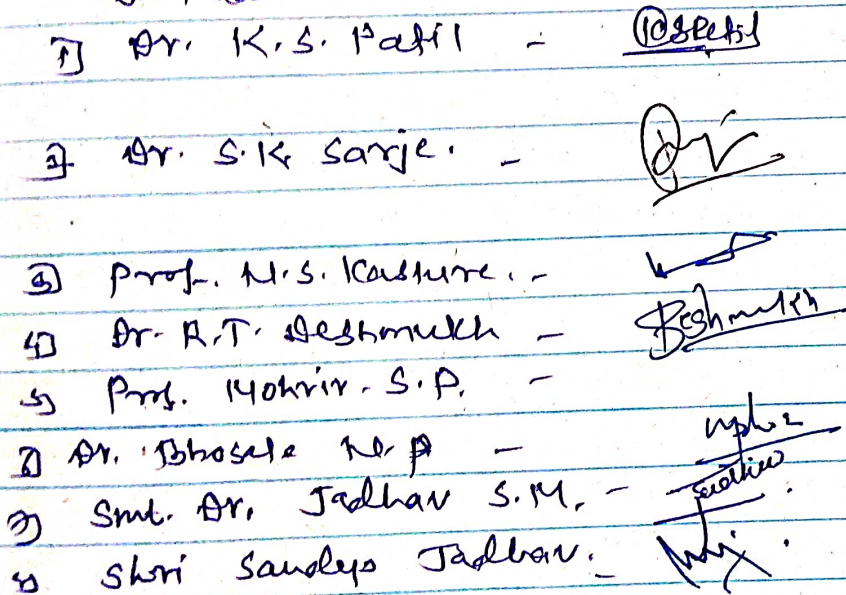 1] Dr. K. S. Patil - KSPatil
2] Dr. S. K Sarje. -
3] Prof. N. S. Kasture. -
4] Dr. R. T. Deshmukh - Deshmukh
5] Prof. Mohrir. S. P. -
Dr. Bhosale N. P -
Smt. Dr. Jadhav S. M. -
Shri Sandip Jadhav. -